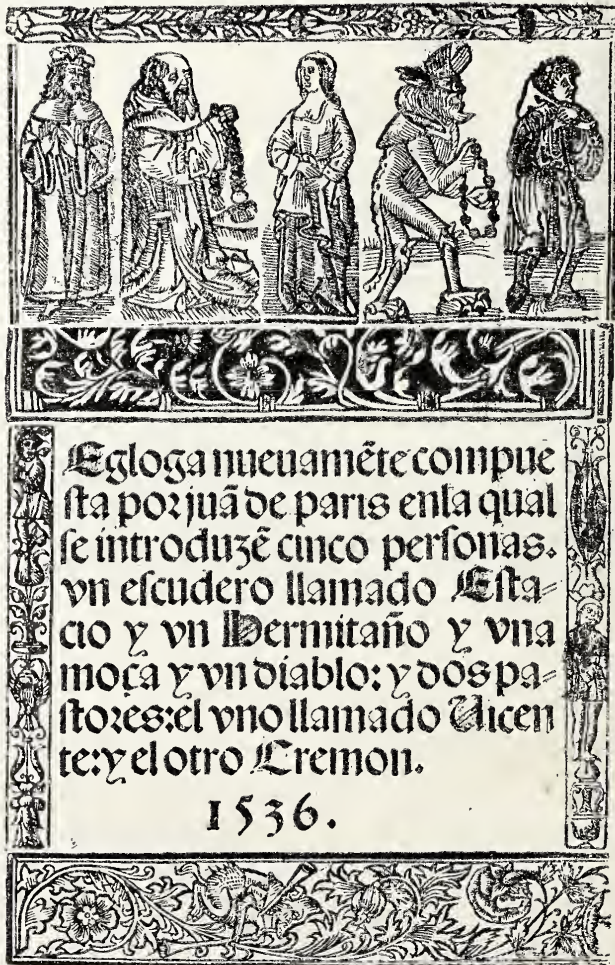 Egloga nueuamẽte compue
sta por juã de paris enla qual
se introduzẽ cinco personas.
vn escudero llamado Esta=
cio y vn Hermitaño y vna
moça y vn diablo: y dos pa=
stores: el vno llamado Uicen
te: y el otro Cremon.
1536.